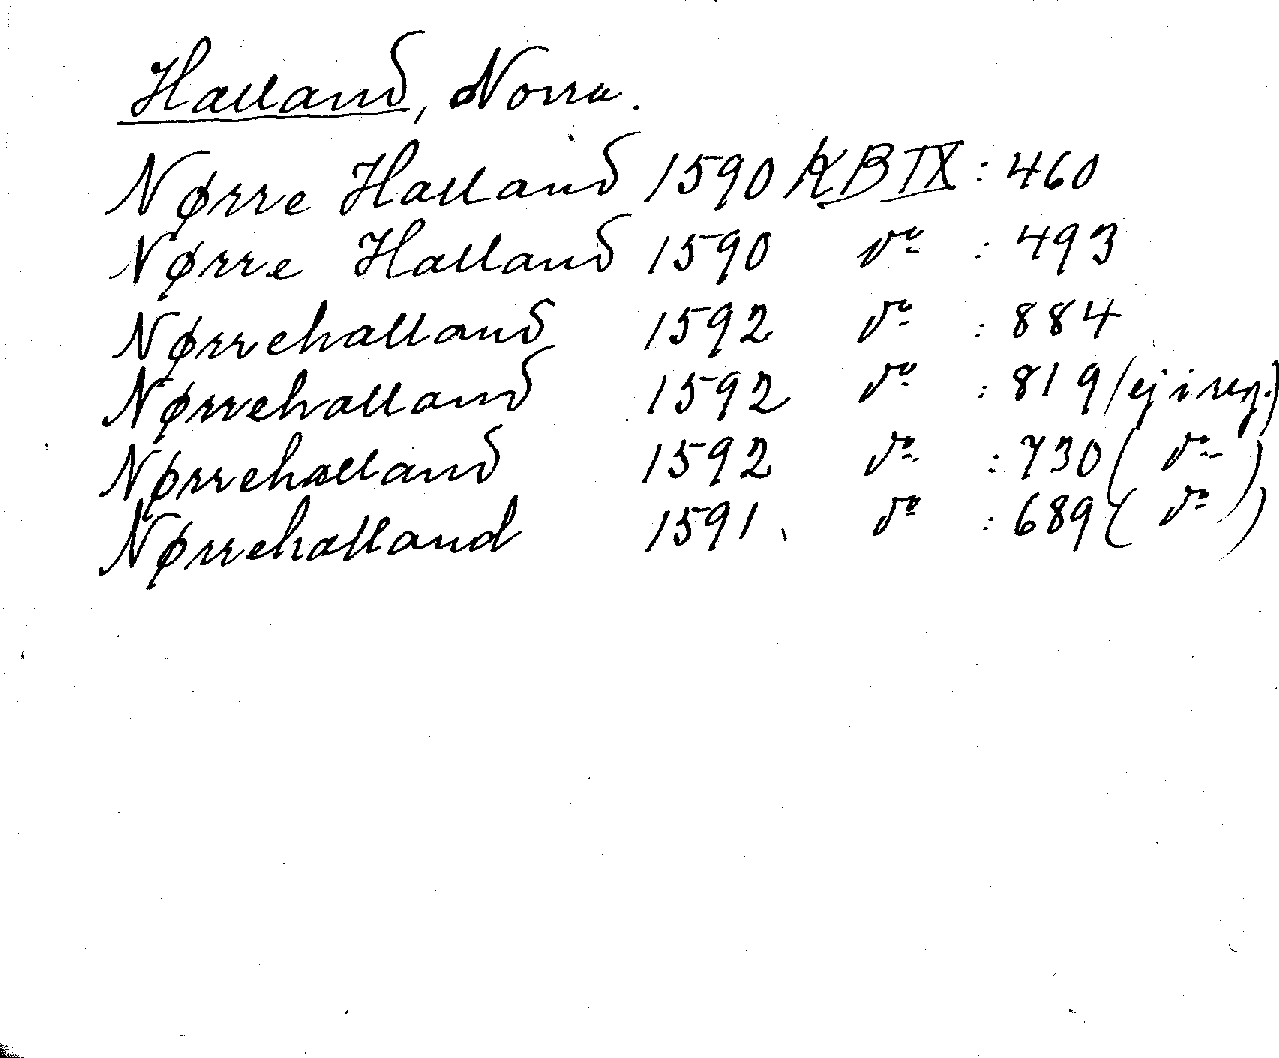 Halland, Norra.
Nørre Halland 1590 KB IX : 460
Nørre Halland 1590 do : 493
Nørrehalland 1592 do : 884
Nørrehalland 1592 do : 819 (ej i reg.)
Nørrehalland 1592 do : 730 ( do )
Nørrehalland 1591. do : 689 ( do )